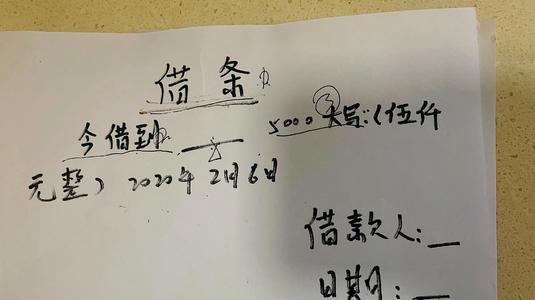 借条
今借到 5000 大写:(伍仟
元整) 2020年2月6日
借款人:
日期: